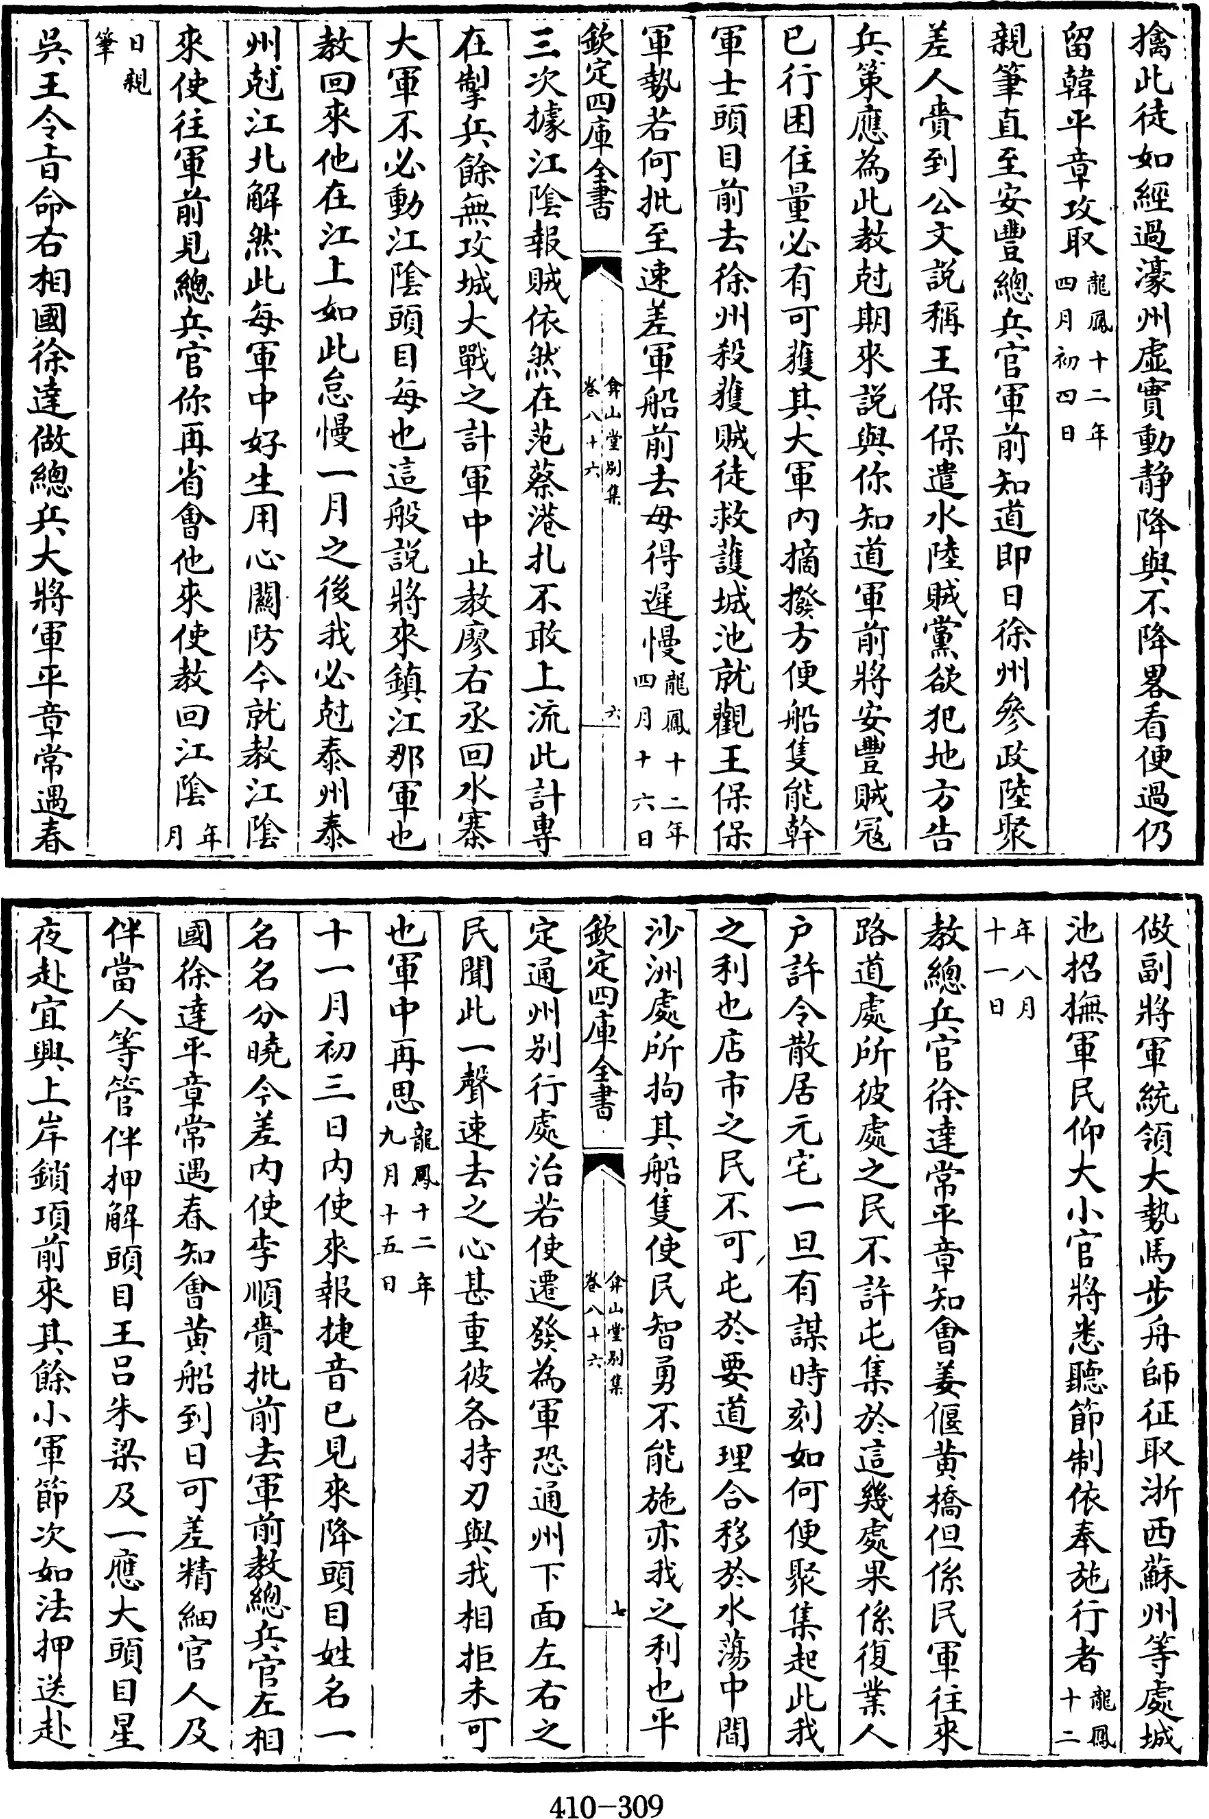 擒此徒如經過濠州虛實動静降與不降畧看便過仍
留韓平章攻取龍鳳十二年四月初四日
親筆直至安豐總兵官軍前知道即日徐州參政陸聚
差人賫到公文説稱王保保遣水陸賊黨欲犯地方告
兵策應為此教尅期來説與你知道軍前將安豐賊冦
已行困住量必有可獲其大軍内摘撥方便船隻能幹
軍士頭目前去徐州殺獲賊徒救護城池就觀王保保
軍勢若何批至速差軍船前去毋得遲慢龍鳳十二年四月十六日
欽定四庫全書
弇山堂別集
卷八十六
六
三次據江陰報賊依然在范蔡港扎不敢上流此計專
在掣兵餘無攻城大戰之計軍中止教廖右丞回水寨
大軍不必動江陰頭目每也這般説將來鎮江那軍也
教回來他在江上如此怠慢一月之後我必尅泰州泰
州尅江北解然此每軍中好生用心關防今就教江陰
來使往軍前見總兵官你再省會他來使教回江陰年月
日親筆
吳王令旨命右相國徐達做總兵大將軍平章常遇春
做副將軍統領大勢馬步舟師征取浙西蘇州等處城
池招撫軍民仰大小官將悉聽節制依奉施行者龍鳳十二
年八月十一日
教總兵官徐達常平章知會姜偃黄橋但係民軍往來
路道處所彼處之民不許屯集於這幾處果係復業人
户許令散居元宅一旦有謀時刻如何便聚集起此我
之利也店市之民不可屯於要道理合移於水蕩中間
沙洲處所拘其船隻使民智勇不能施亦我之利也平
欽定四庫全書
弇山堂別集
卷八十六
七
定通州别行處治若使遷發為軍恐通州下面左右之
民聞此一聲速去之心甚重彼各持刃與我相拒未可
也軍中再思龍鳳十二年九月十五日
十一月初三日内使來報捷音已見來降頭目姓名一
名名分曉今差内使李順賫批前去軍前教總兵官左相
國徐達平章常遇春知會黄船到日可差精細官人及
伴當人等管伴押解頭目王吕朱梁及一應大頭目星
夜赴宜興上岸鎖項前來其餘小軍節次如法押送赴
410-309